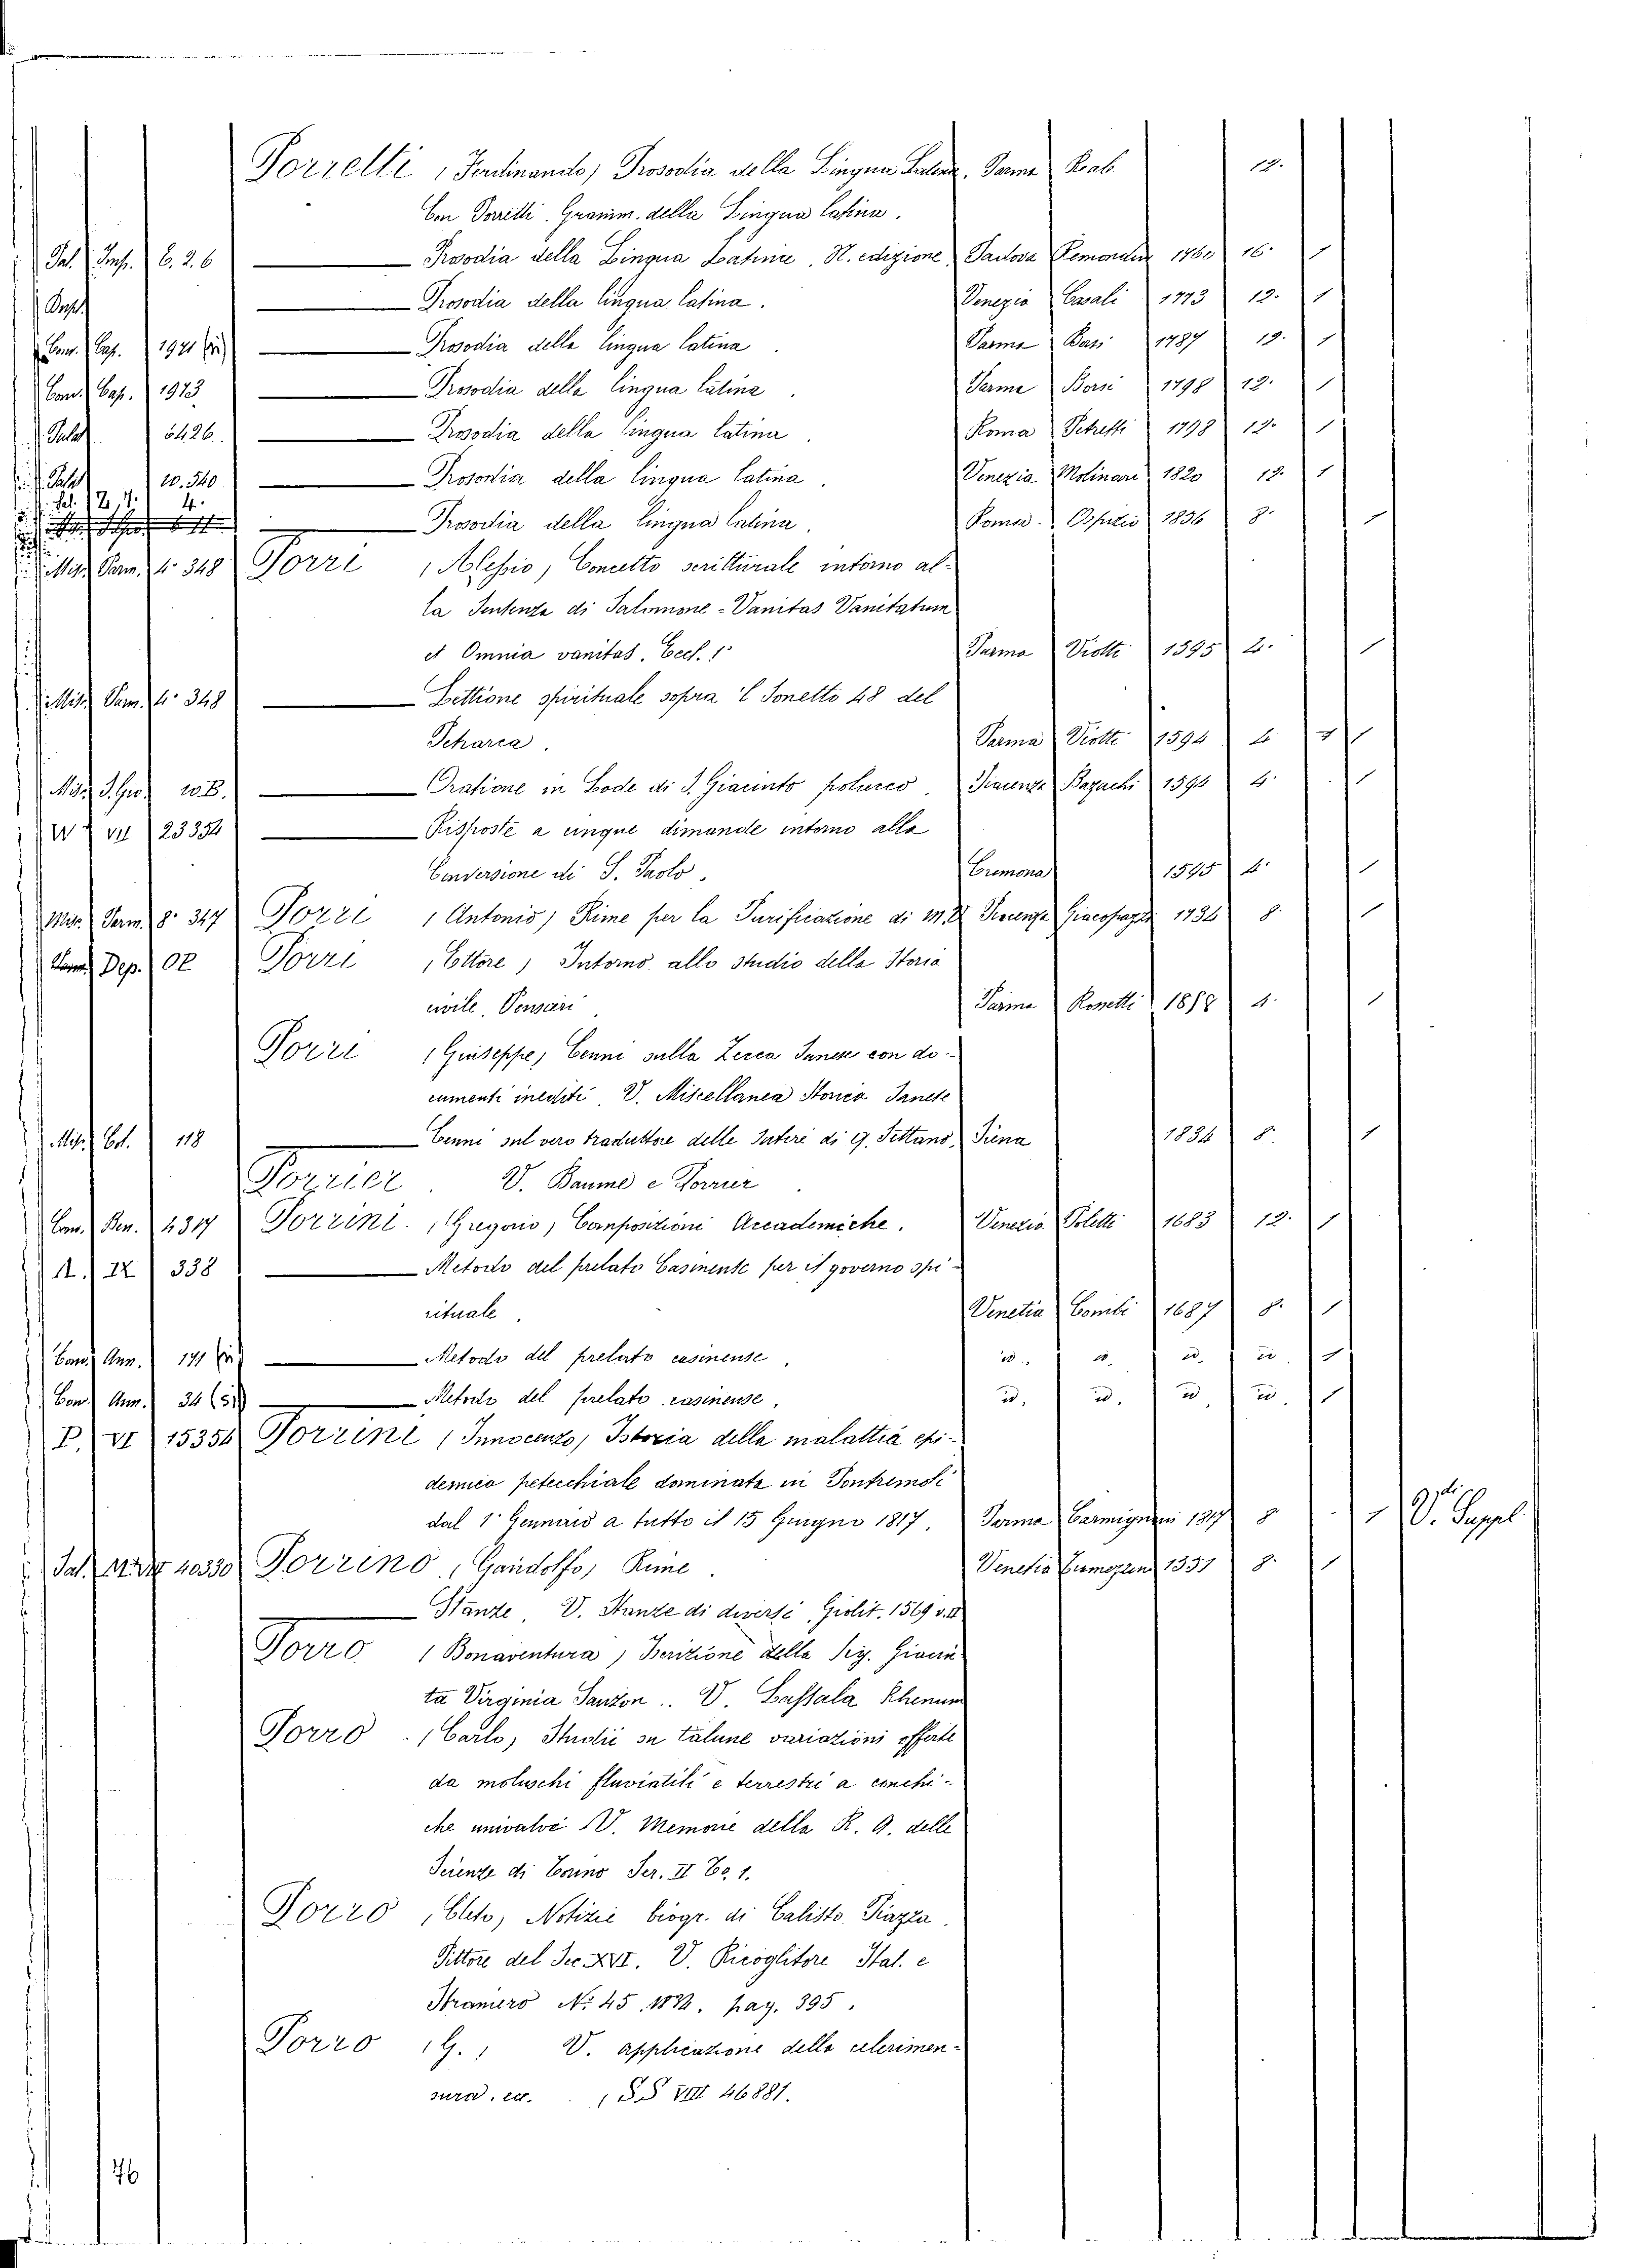 Porretti (Ferdinando) Prosodia della Lingua Latina. Parma 12.
Con Porretti. Gramm. della Lingua latina.
Pal. Imp. C. 2. 6 — Prosodia della Lingua Latina. N. edizione Padova Remondin 1760 16. 1
— Prosodia della lingua latina. Venezia Casali 1773 12. 1
Conv. Cap. 1921 — Prosodia della lingua latina. Parma 1787 12. 1
Conv. Cap. 1973 — Prosodia della lingua latina. Parma Borsi 1798 12. 1
Palat 5426. — Prosodia della lingua latina. Roma Petretti 1798 12. 1
Palat 10.540 — Prosodia della lingua latina. Venezia Molinari 1820 12. 1
4. — Prosodia della lingua latina. Roma Ospizio 1836 8. 1
Misc. Parm. 4° 348 Porri (Alessio) Concetto scritturale intorno al-
la Sentenza di Salomone - Vanitas Vanitatum
et Omnia vanitas. Eccl. 1° Parma Viotti 1595 4. 1
Misc. Parm. 4° 348 — Lettione spirituale sopra 'l Sonetto 48 del
Petrarca. Parma Viotti 1594 4 1
Misc. S. Gio. 10 B. — Oratione in Lode di S. Giacinto polacco. Piacenza Bazachi 1594 4. 1
W VII 23354 — Risposte a cinque dimande intorno alla
Conversione di S. Paolo. Cremona 1595 4. 1
Misc. Parm. 8° 347 Porri (Antonio) Rime per la Purificazione di M. V. Piacenza Giacopazzi 1736 8. 1
Dep. Porri (Ettore) Intorno allo studio della Storia
civile, Pensieri Parma Rossetti 1888 4. 1
Porri (Giuseppe) Cenni sulla Zecca Sanese con do-
cumenti inediti. V. Miscellanea Storica Sanese
Misc. 118 — Cenni sul vero traduttore delle Satire di Q. Settano, Siena 1834 8. 1
Porrier. V. Baume e Porrier
Conv. Ben. 4317 Porrini. (Gregorio) Composizioni Accademiche. Venezia Poletti 1683 12. 1
A. IX 338 — Metodo del prelato Casinense per il governo spi-
rituale. Venetia Combi 1687 8. 1
Conv. Ann. 171 — Metodo del prelato casinense. id. id. id. id. 1
Conv. Ann. 34 (51) — Metodo del prelato casinense. id. id. id. id. 1
P. VI 15354 Porrini (Innocenzo) Istoria della malattia epi-
demica petecchiale dominata in Pontremoli
dal 1° Gennaio a tutto il 15 Giugno 1817. Parma Carmignani 1817 8 1 V. Suppl.
Sal. 40330 Porrino (Gandolfo) Rime. Venetia 1551 8. 1
— Stanze. V. Stanze di diversi. Giolit. 1569 v. II
Porro (Bonaventura) Iscrizione della Sig. Giacin-
ta Virginia Sanzon.. V. Bassala Rhenum
Porro. (Carlo) Studii su talune variazioni offerte
da molluschi fluviatili e terrestri a conchi-
che univalvi V. Memorie della R. A. delle
Scienze di Torino Ser. II To. 1.
Porro (Cleto) Notizie biogr. di Calisto Piazza.
Pittore del Sec. XVI. V. Ricoglitore Ital. e
Straniero N° 45. pag. 395.
Porro (G.) V. applicazione della celerimen-
sura. ec. (SS VIII 46881.
76